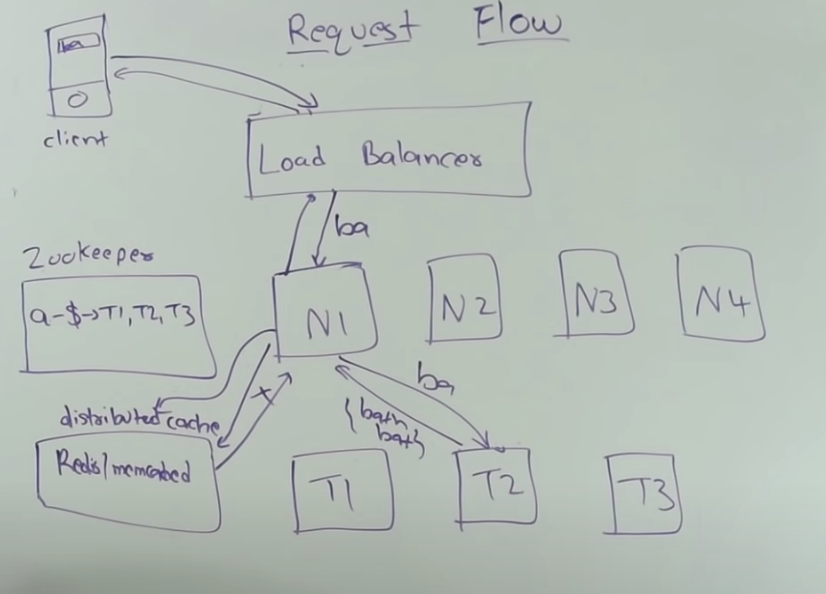 Request Flow
ba
client
Load Balancer
ba
Zookeeper
a-$→T1, T2, T3
N1
N2
N3
N4
x
ba
{bath,
bat}
distributed cache
Redis/memcached
T1
T2
T3